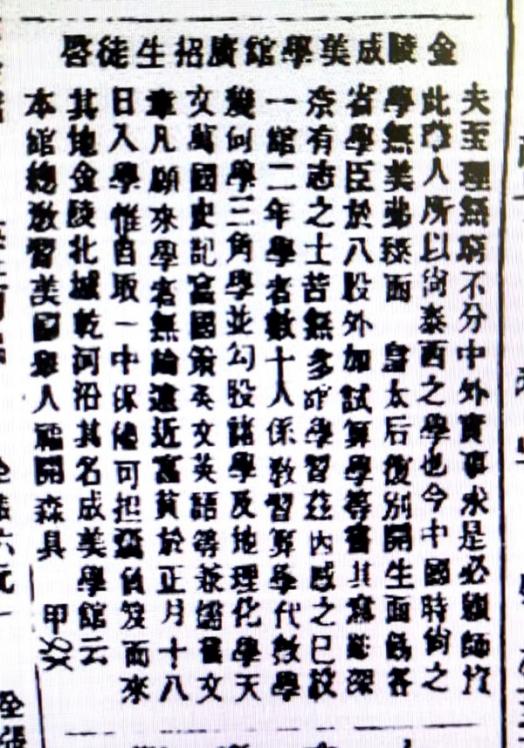 金陵成美學館廣招生徒啓
夫至理無窮不分中外實事求是必賴師
此人所以尚泰西之學也今中國時尚之
學無美弗臻而 皇太后復別開生面飭各
省學臣於八股外加試算學等書其寓深
奈有志之士苦無多師學習茲內感之已設
一館二年學者數十人係教習算學代數學
幾何學三角學並勾股諸學及地理化學天
文萬國史記富國策英文英語等兼儒書文
章凡願來學者無論遠近富貧於正月十八
日入學惟自取一中保可担囊負笈而來
其地金陵北城乾河沿其名成美學館云
本館總教習美國舉人福開森具 甲